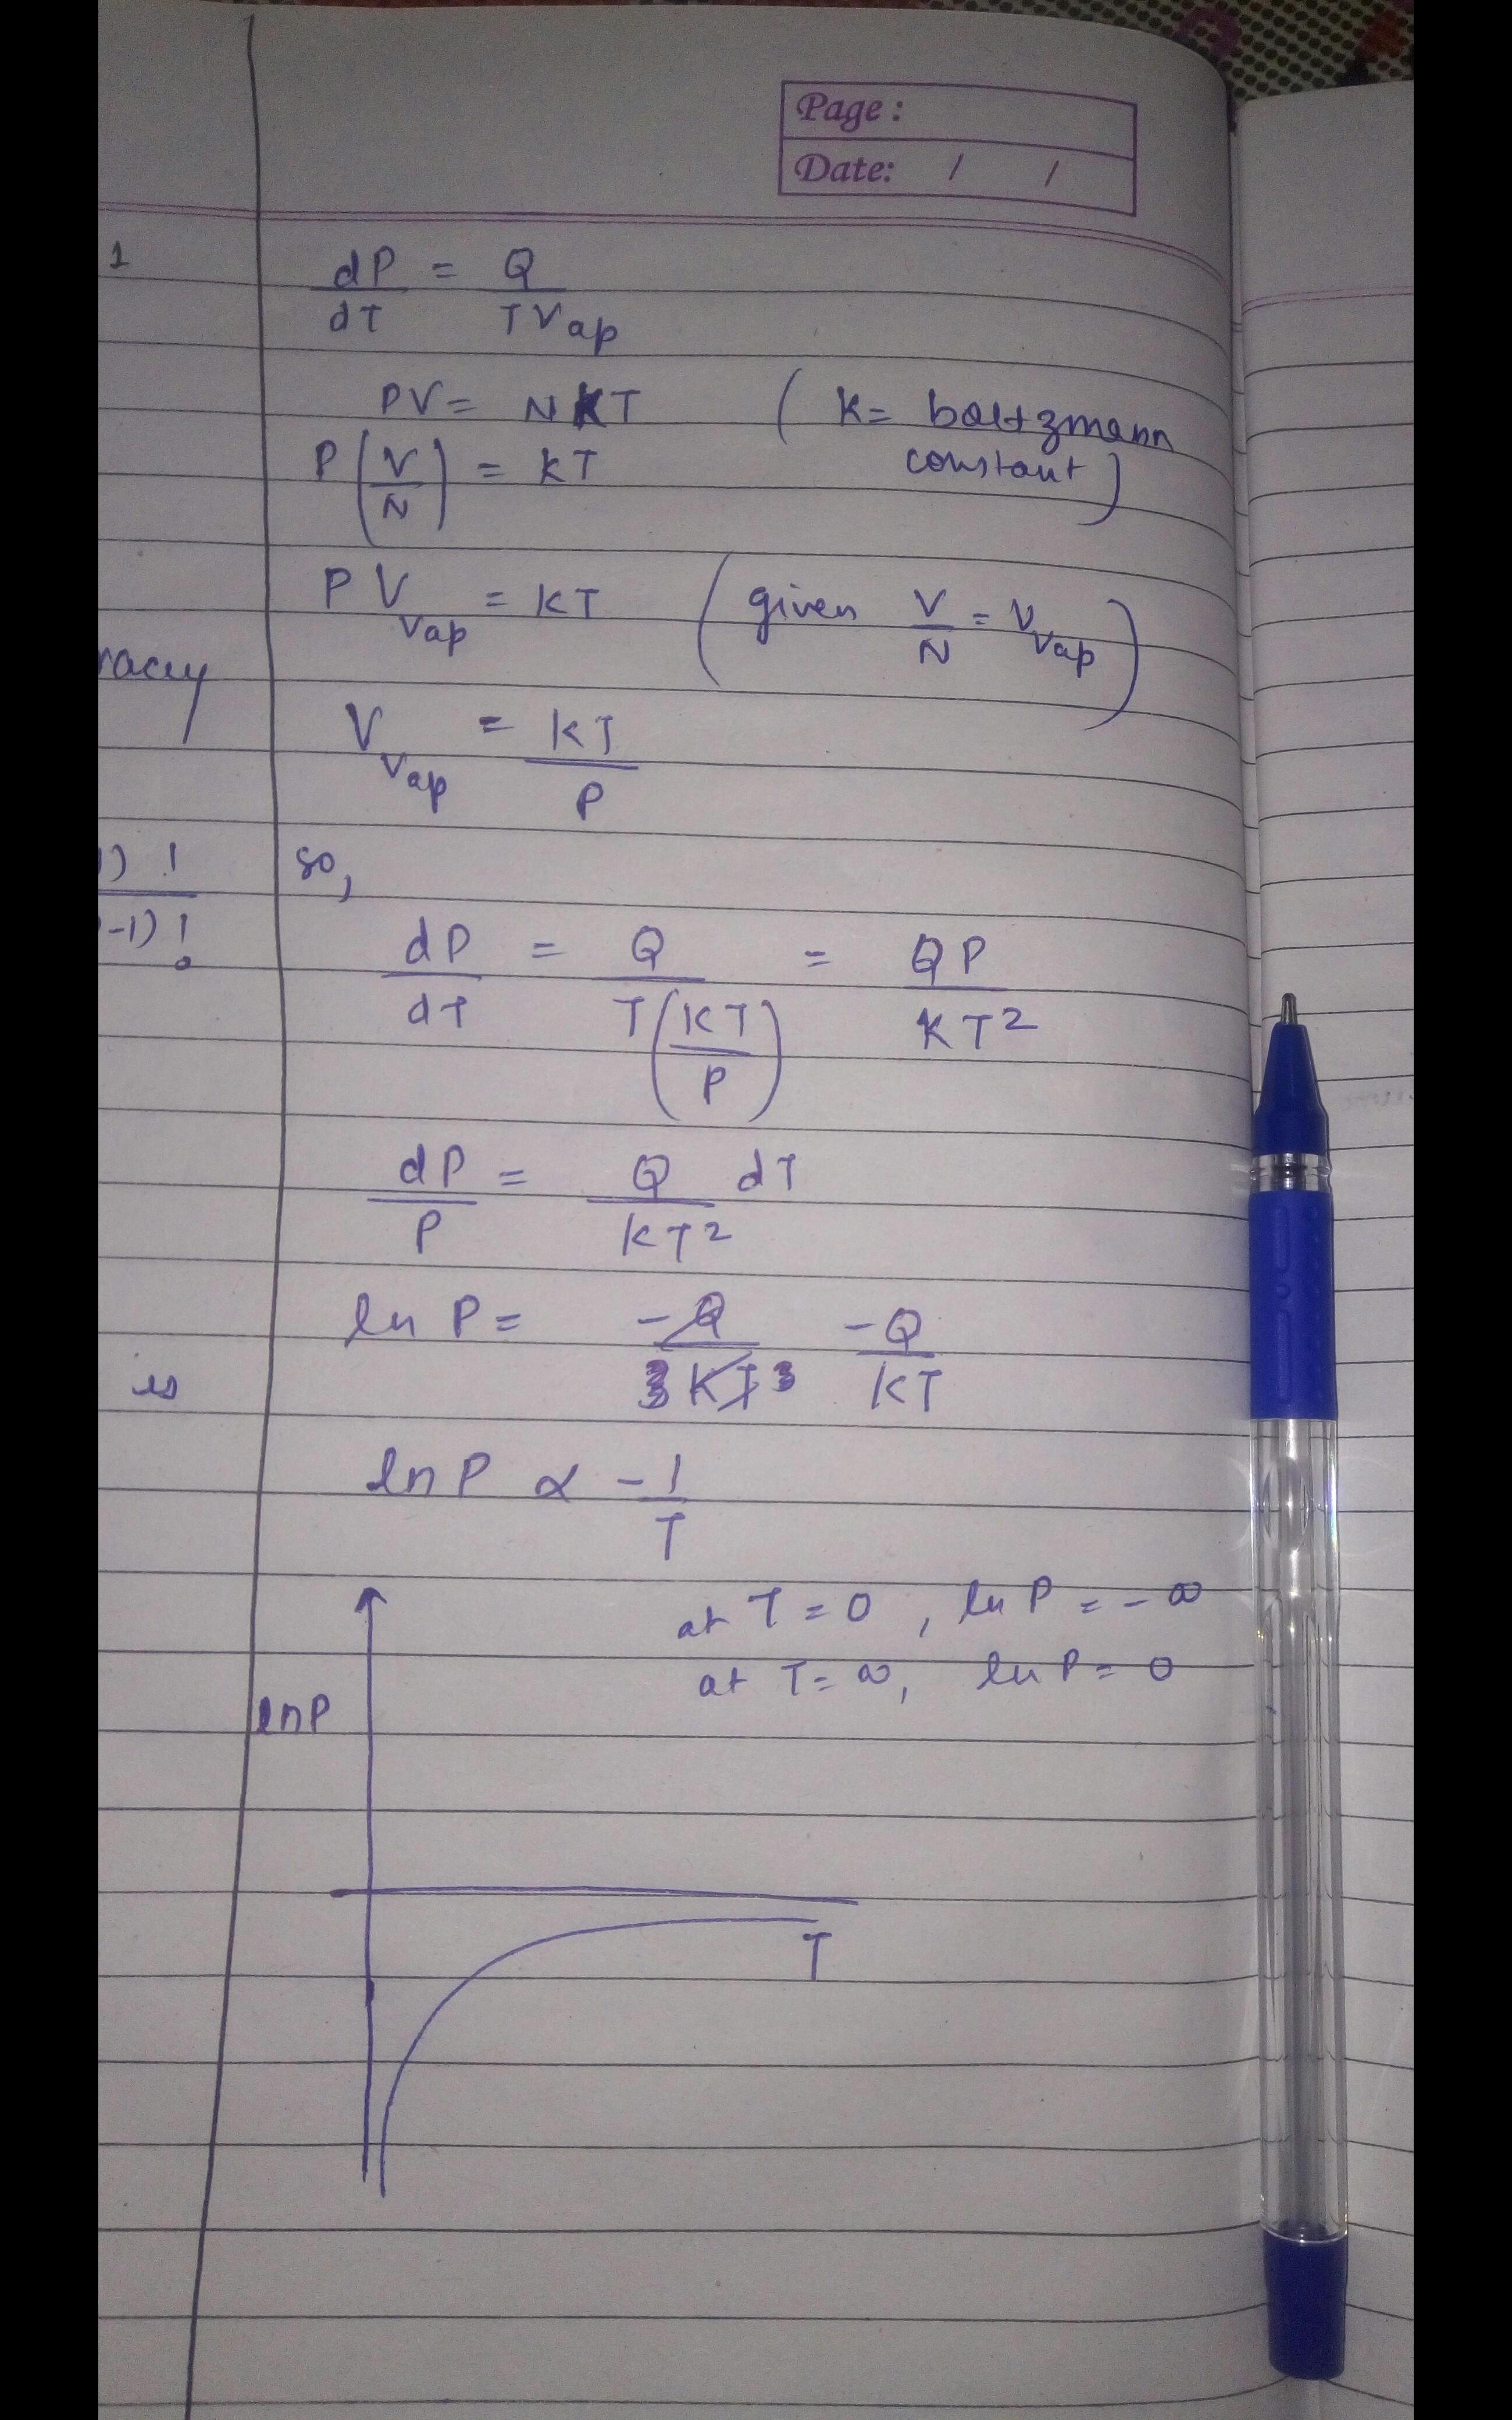 Page :
Date: / /
1
dP/dT = Q/TVap
PV = NKT ( K = boltzmann
constant )
P (V/N) = KT
P V_vap = KT ( given V/N = V_vap )
racy
V_vap = KT/P
) !
-1) !
so,
dP/dT = Q/T(KT/P) = QP/KT²
dP/P = Q/KT² dT
ln P = -Q/KT
is
ln P ∝ -1/T
at T = 0 , ln P = - ∞
at T = ∞, ln P = 0
ln P
T